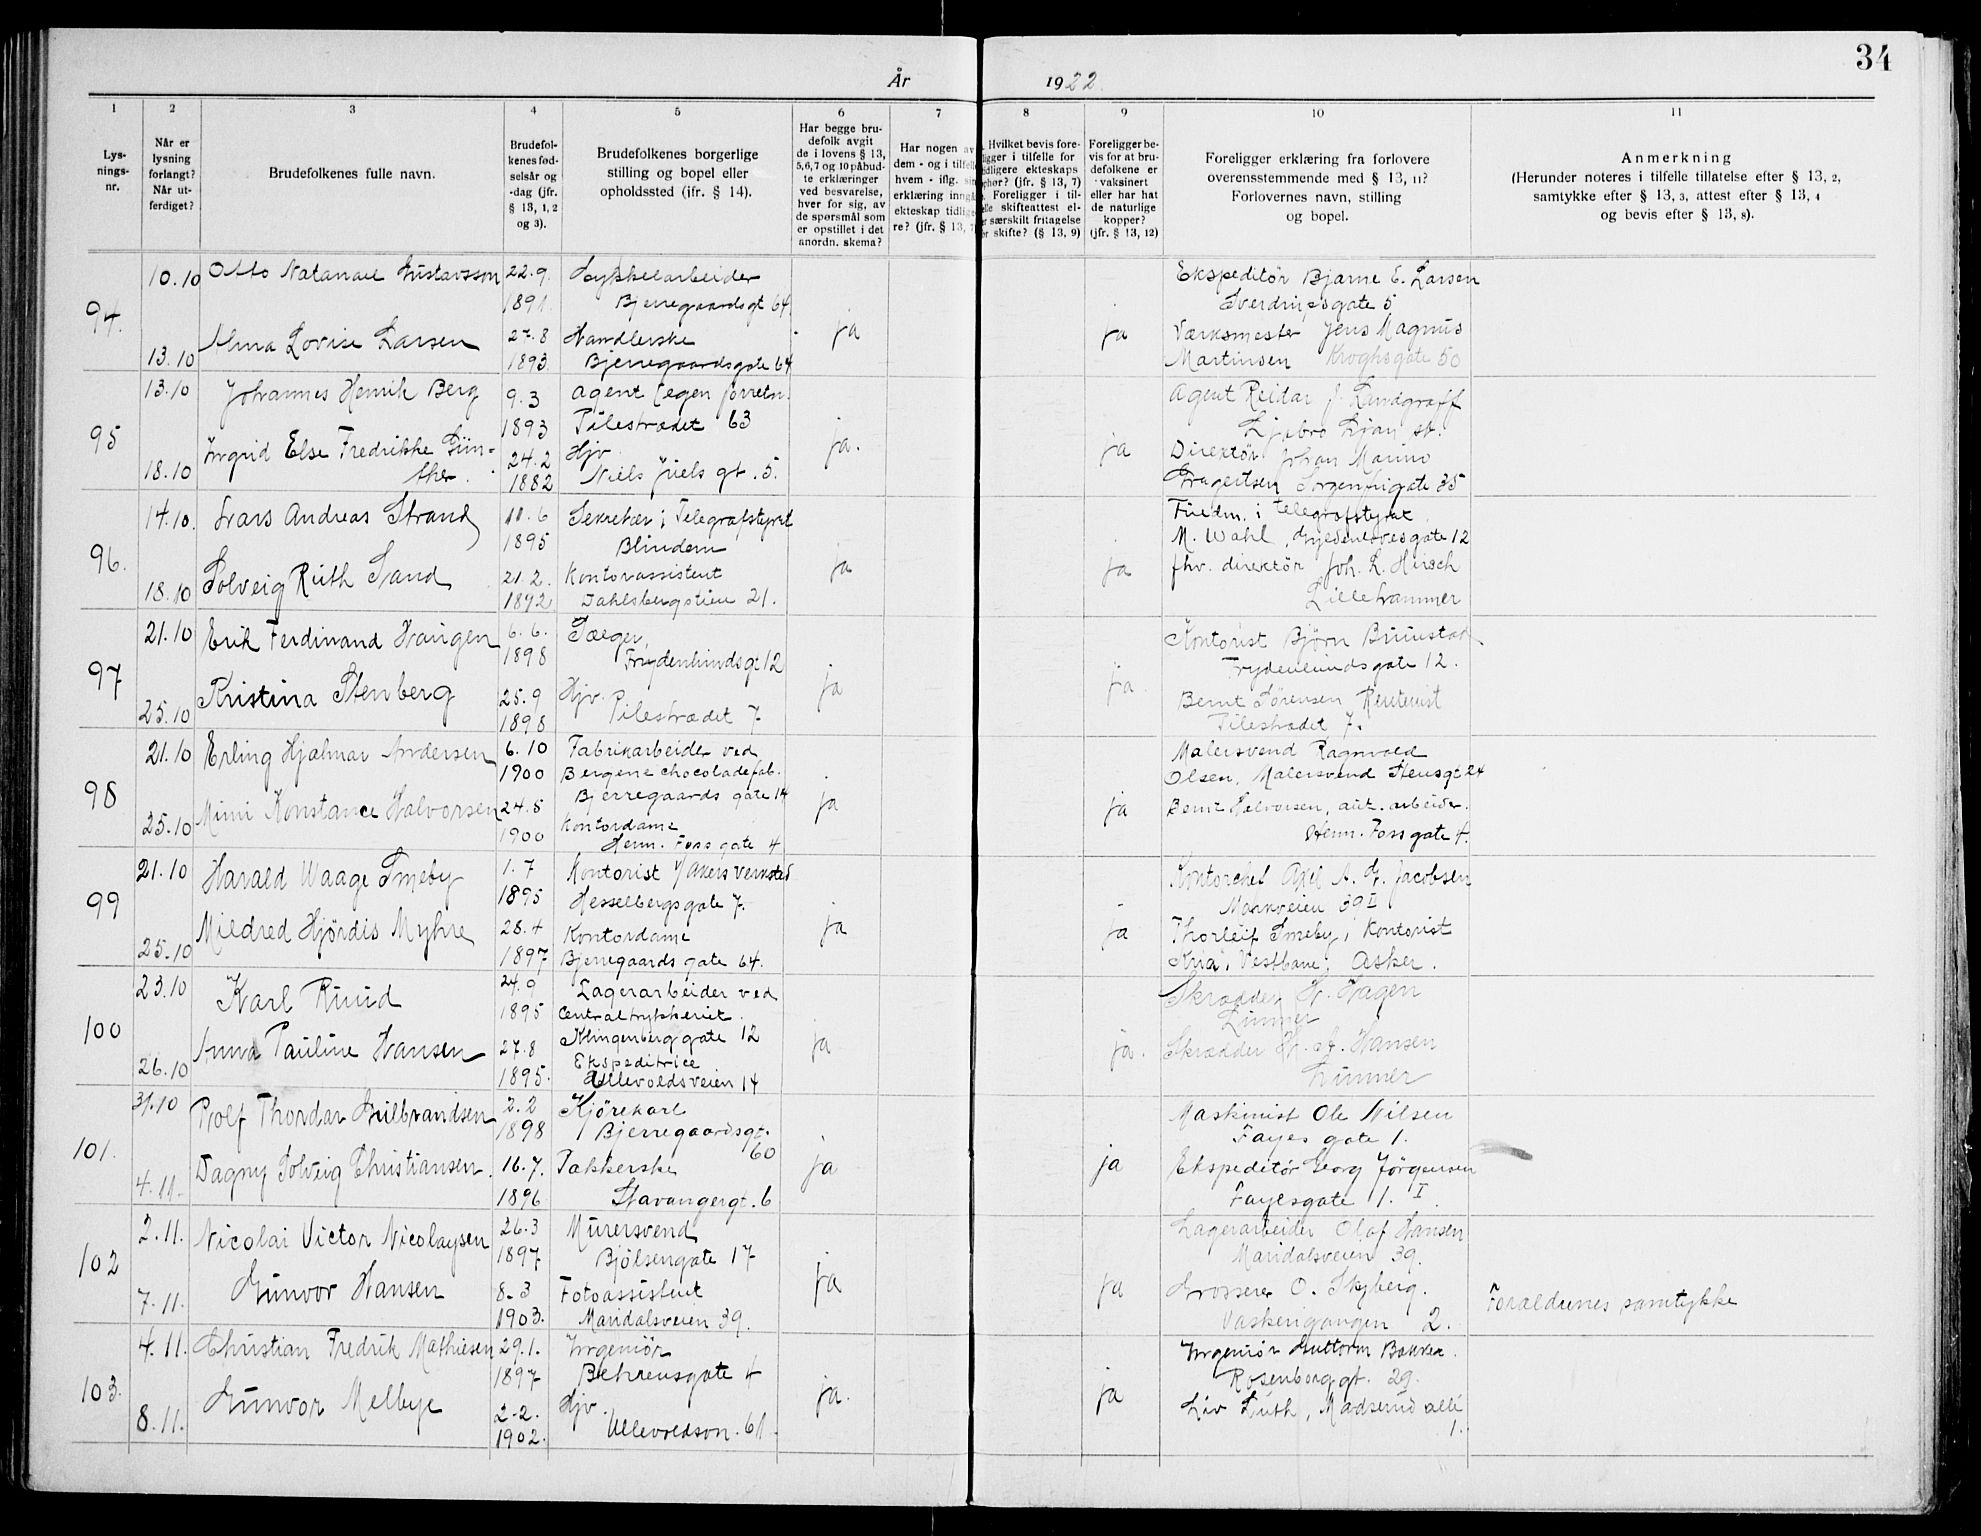 34
År 1922.
1 2 3 4 5 6 7 8 9 10 11
Lysnings-nr.
Når er lysning forlangt? Når utferdiget?
Brudefolkenes fulle navn.
Brudefolkenes fødselsår og -dag (jfr. § 13, 1, 2 og 3).
Brudefolkenes borgerlige stilling og bopel eller opholdssted (jfr. § 14).
Har begge brudefolk avgit de i lovens § 13, 5, 6, 7 og 10 påbudte erklæringer ved besvarelse, hver for sig, av de spørsmål som er opstillet i det anordn. skema?
Har nogen av dem - og i tilfelle hvem - iflg. sin erklæring inngå ekteskap tidligere? (jfr. § 13, 7
Hvilket bevis foreligger i tilfelle for tidligere ekteskaps ophør? (jfr. § 13, 7) Foreligger i tilfelle skifteattest eller særskilt fritagelse for skifte? (§ 13, 9)
Foreligger bevis for at brudefolkene er vaksinert eller har hat de naturlige kopper? (jfr. § 13, 12)
Foreligger erklæring fra forlovere overensstemmende med § 13, 11? Forlovernes navn, stilling og bopel.
Anmerkning
(Herunder noteres i tilfelle tillatelse efter § 13, 2, samtykke efter § 13, 3, attest efter § 13, 4 og bevis efter § 13, 8).
94. 10.10 Otto Natanael Gustavsson 22.9. 1891. Sykkelarbeider Bjerregaardsgt 64 ja ja Ekspeditør Bjarne E. Larsen Sverdrupsgate 5
13.10 Alma Lovise Larsen 27.8 1893 Handlerske Bjerregaardsgate 64 Værksmester Jens Magnus Martinsen Kroghsgate 50
95 13.10 Johannes Henrik Berg 9.3 1893 Agent (egen forretn. Pilestrædet 63 ja. ja Agent Reidar J. Landgraff Ljabro Ljan st.
18.10 Ingrid Else Fredrikke Günther. 24.2 1882 Hjv. Niels Juels gt. 5. Direktør Johan Marino Sorgenfrigate 35
96. 14.10. Lars Andreas Strand 11.6 1895 Sekretær i Telegrafstyret Blindern ja ja Fuldm. i telegrafstyret M. Wahl, gate 12
18.10 Solveig Ruth Sand 21.2. 1892 Kontorassistent Dahlsbergstien 21. fhv. direktør Joh. L. Hirsch Lillehammer
97 21.10 Erik Ferdinand Haugen 6.6. 1898 Sælger, Frydenlundsgt 12 ja ja Kontorist Bjørn Buunstad Frydenlundsgate 12.
25.10 Kristina Stenberg 25.9 1898 Hjv. Pilestrædet 7 Bernt Sørensen Rentenist Pilestrædet 7.
98 21.10 Erling Hjalmar Andersen 6.10 1900 Fabrikarbeider ved Bergene chocoladefab. Bjerregaards gate 14 ja ja Malersvend Ragnvald Olsen, Malersvend Stensgt 24
25.10 Mimi Konstance Halvorsen 24.8 1900 Kontordame Herm. Foss gate 4 Bernt Halvorsen, aut. arbeider. Herm. Fossgate 4.
99 21.10 Harald Waage Smeby 1.7 1895 Kontorist v/ Akers verksted Hesselbergsgate 7. ja ja Kontorchef Axel A. G. Jacobsen Markveien 39 I
25.10 Mildred Hjørdis Myhre 28.4 1897 Kontordame Bjerregaards gate 64. Thorleif Smeby, Kontorist Kria. Vestbane, Asker.
100 23.10 Karl Ruud 24.9 1895 Lagerarbeider ved Centraltrykkeriet. Klingenberggate 12 ja ja. Skrædder H. Hagen Lunner
26.10 Anna Pauline Hansen 27.8 1895. Ekspeditrice Ullevoldsveien 14 Skrædder Hansen Lunner
101. 31.10 Rolf Thordar Gulbrandsen 2.2 1898 Kjørekarl Bjerregaardsgt. 60 ja ja Maskinist Ole Nilsen Fayes gate 1.
4.11. Dagny Solveig Christiansen. 16.7. 1896 Pakkerske Stavangergt. 6 Ekspeditør Georg Jørgensen Fayesgate 1. I
102 2.11. Nicolai Victor Nicolaysen 26.3 1897 Murersvend Bjølsengate 17 ja ja Lagerarbeider Olaf Hansen Maridalsveien 39.
7.11. Gunvor Hansen 8.3 1903. Fotoassistent Maridalsveien 39. Grosserer O. Skyberg. Vaskerigangen 2. Foraldrenes samtykke
103. 4.11. Christian Fredrik Mathiesen 29.1. 1897 Ingeniør Behrensgate 4 ja. ja Ingeniør Guttorm Bakken. Rosenborggt. 29.
8.11. Gunvor Melbye 2.2. 1902. Hjv. Ullevoldsvn. 61. Liv Luth, Madserud allé 1.